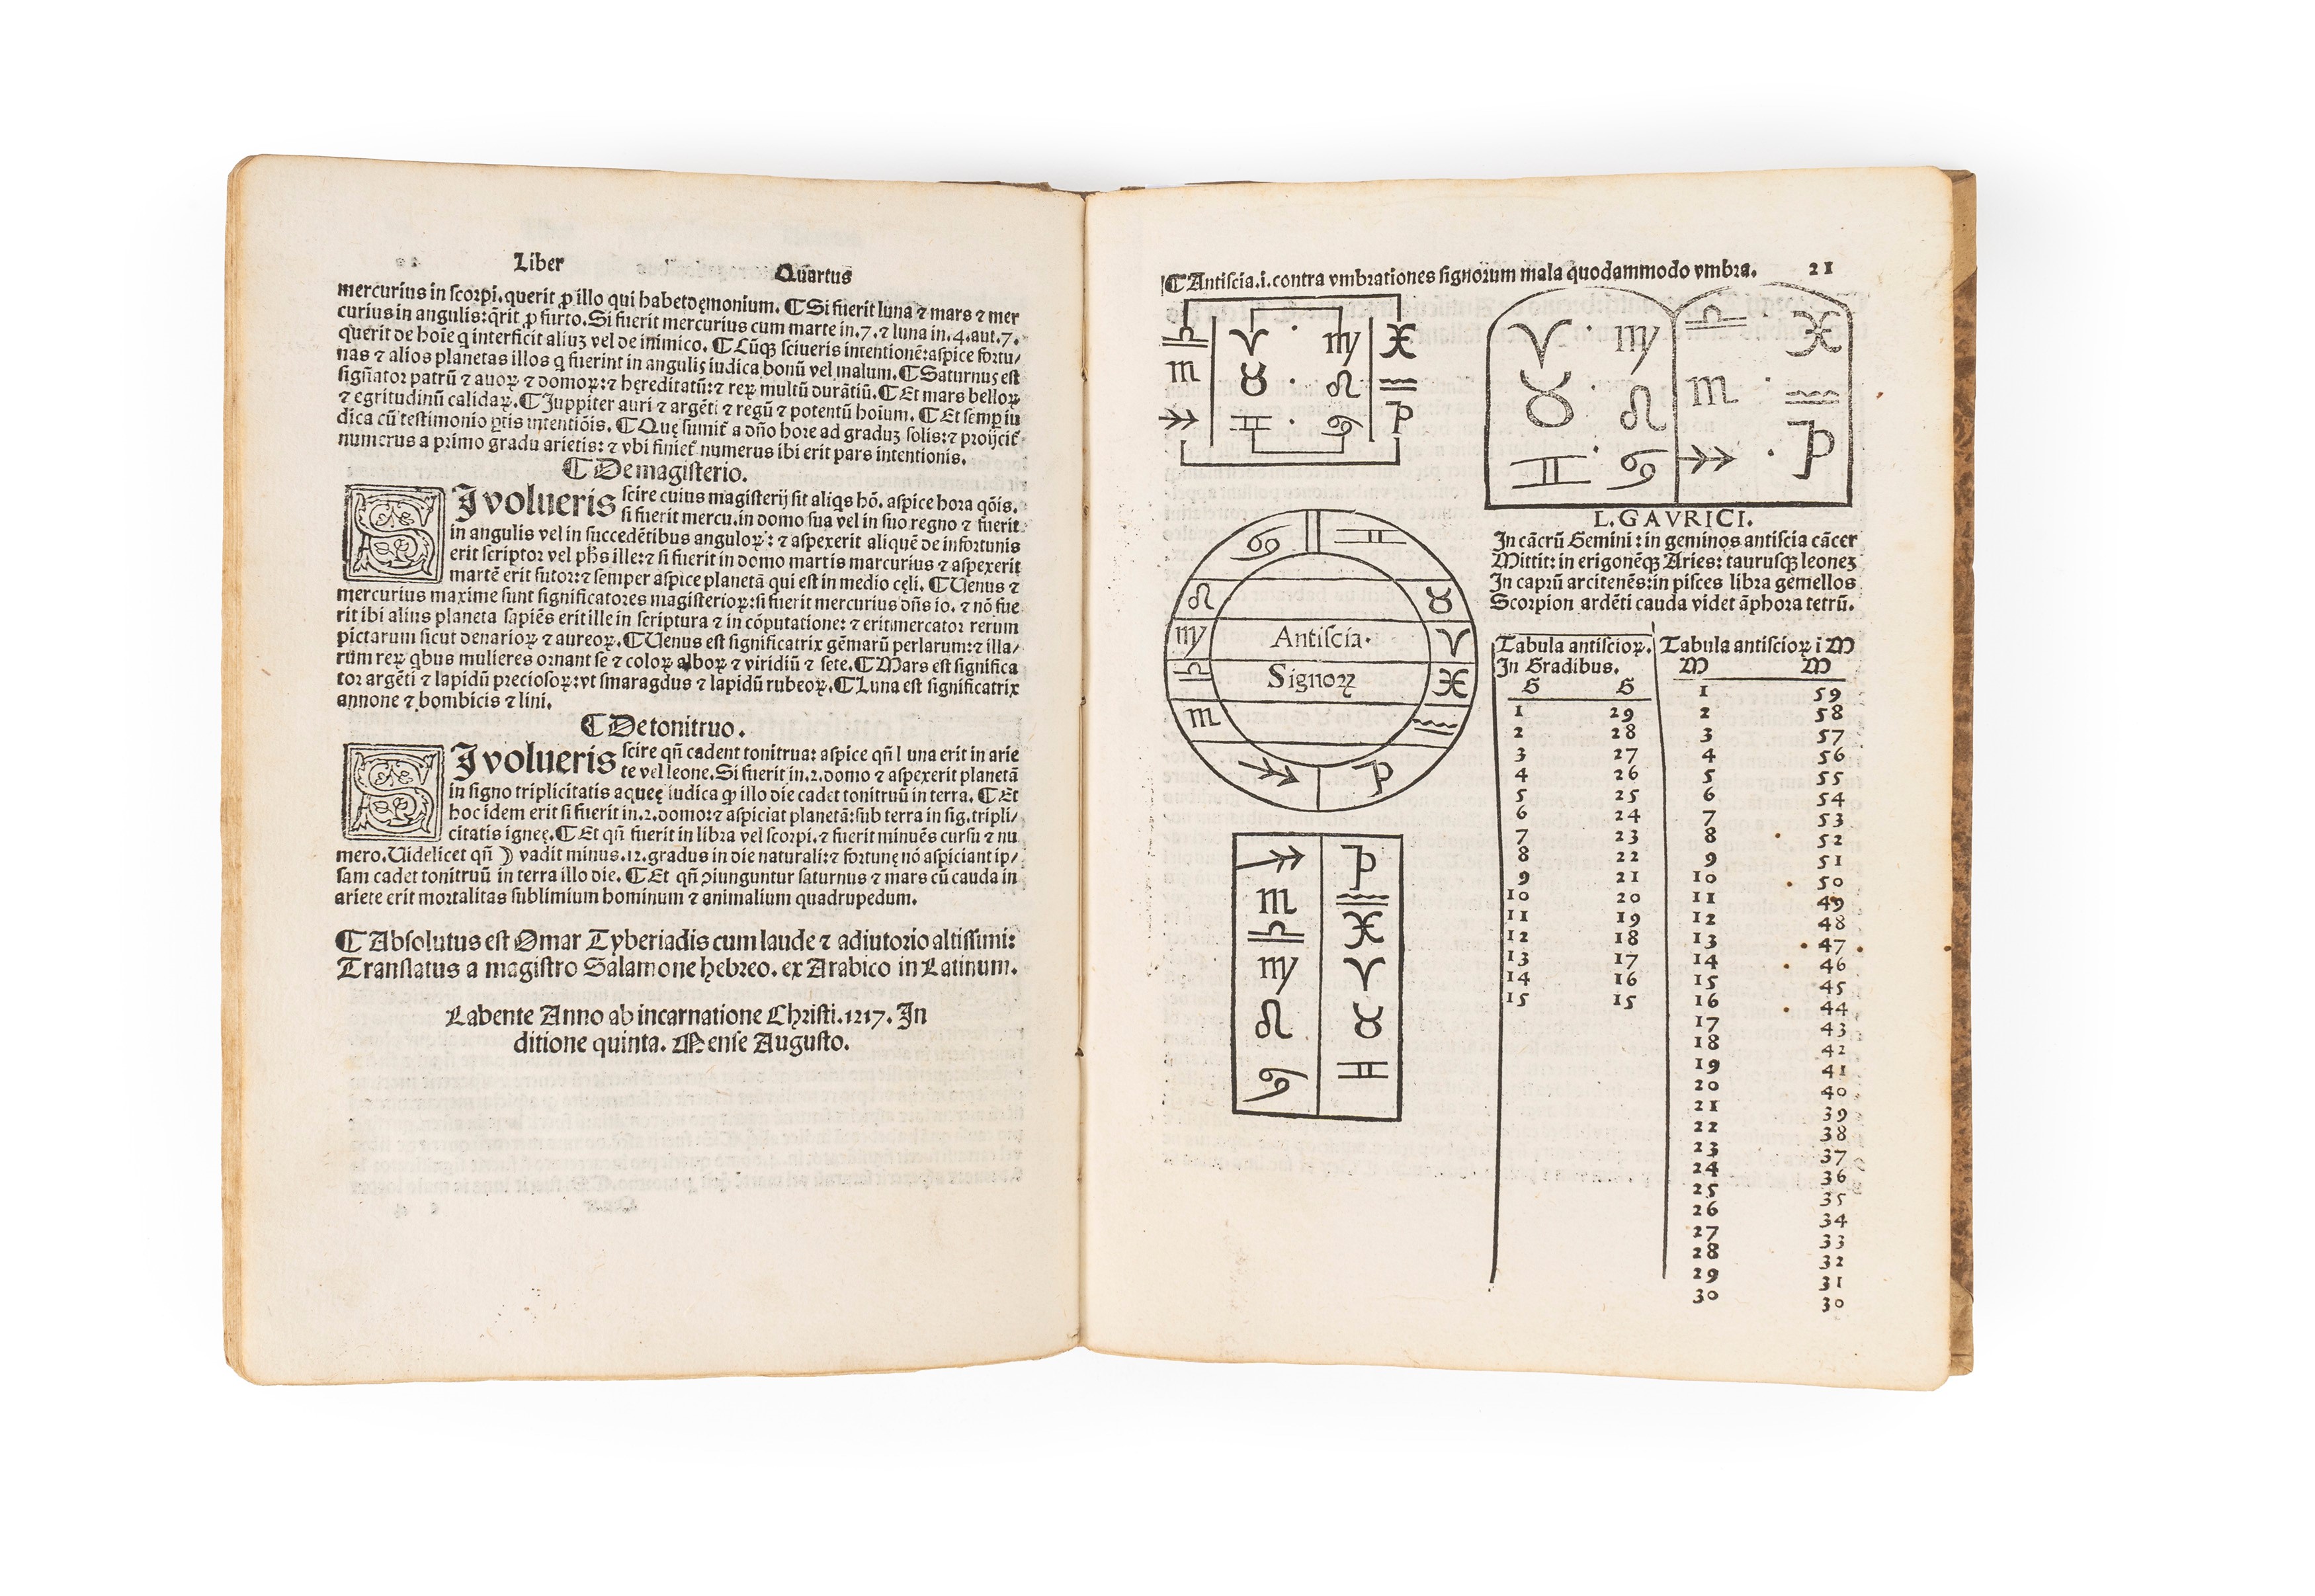 Liber Quartus
mercurius in scorpi. querit ꝓ illo qui habet dęmonium. ⸿ Si fuerit luna ⁊ mars ⁊ mer
curius in angulis: q̄rit ꝓ furto. Si fuerit mercurius cum marte in .7. ⁊ luna in .4. aut .7.
querit de hoīe q̇ interficit aliuꝫ vel de inimico. ⸿ Cūqꝫ sciueris intentionē: aspice fortu/
nas ⁊ alios planetas illos q̇ fuerint in angulis iudica bonū vel malum. ⸿ Saturnus est
signator patrū ⁊ auoꝝ ⁊ domoꝝ: ⁊ hęreditatū: ⁊ reꝝ multū durātiū. ⸿ Et mars belloꝝ
⁊ egritudinū calidaꝝ. ⸿ Juppiter auri ⁊ argēti ⁊ regū ⁊ potentū hoium. ⸿ Et semꝑ iu
dica cū testimonio ꝑtis intentiōis. ⸿ Quę sumit̄ a dño hore ad graduꝫ solis: ⁊ proijcit̄
numerus a primo gradu arietis: ⁊ vbi finiet̄ numerus ibi erit pars intentionis.
⸿ De magisterio.
SI volueris scire cuius magisterij sit aliqs hō. aspice hora qōis.
si fuerit mercu. in domo sua vel in suo regno ⁊ fuerit
in angulis vel in succedētibus anguloꝝ: ⁊ aspexerit aliquē de infortunis
erit scriptor vel phs ille: ⁊ si fuerit in domo martis marcurius ⁊ aspexerit
martē erit sutor: ⁊ semper aspice planetā qui est in medio cęli. ⸿ Uenus ⁊
mercurius maxime sunt significatores magisterioꝝ: si fuerit mercurius dñs io. ⁊ nō fue
rit ibi alius planeta sapiēs erit ille in scriptura ⁊ in cōputatione: ⁊ erit mercator rerum
pictarum sicut denarioꝝ ⁊ aureoꝝ. ⸿ Uenus est significatrix gēmarū perlarum: ⁊ illa/
rum reꝝ qbus mulieres ornant se ⁊ coloꝝ alboꝝ ⁊ viridiū ⁊ sete. ⸿ Mars est significa
tor argēti ⁊ lapidū preciosoꝝ: vt smaragdus ⁊ lapidū rubeoꝝ. ⸿ Luna est significatrix
annone ⁊ bombicis ⁊ lini.
⸿ De tonitruo.
SI volueris scire qn̄ cadent tonitrua: aspice qn̄ luna erit in arie
te vel leone. Si fuerit in .2. domo ⁊ aspexerit planetā
in signo triplicitatis aqueę iudica ꝙ illo die cadet tonitruū in terra. ⸿ Et
hoc idem erit si fuerit in .2. domo: ⁊ aspiciat planetā: sub terra in sig. tripli/
citatis igneę. ⸿ Et qn̄ fuerit in libra vel scorpi. ⁊ fuerit minuēs cursu ⁊ nu
mero. Uidelicet qn̄ ☽ vadit minus .12. gradus in die naturali: ⁊ fortunę nō aspiciant ip/
sam cadet tonitruū in terra illo die. ⸿ Et qn̄ ɔiunguntur saturnus ⁊ mars cū cauda in
ariete erit mortalitas sublimium hominum ⁊ animalium quadrupedum.
⸿ Absolutus est Omar Tyberiadis cum laude ⁊ adiutorio altissimi:
Translatus a magistro Salamone hębreo. ex Arabico in Latinum.
Labente Anno ab incarnatione Christi. 1217. In
ditione quinta. Mense Augusto.
⸿ Antiscia .i. contra vmbrationes signorum mala quodammodo vmbra. 21
♎ ♈ · ♍ ♓
♏ ♉ · ♌ ♒
♐ ♊ · ♋ ♑
♈ · ♍ ♎ · ♓
♉ · ♌ ♏ · ♒
♊ · ♋ ♐ · ♑
L. GAVRICI.
In cācrū Gemini: in geminos antiscia cācer
Mittit: in erigonēqꝫ Aries: taurusqꝫ leoneꝫ
In caprū arcitenēs: in pisces libra gemellos
Scorpion ardēti cauda videt āphora tetrū.
♋ ♊
♌ ♉
♍ Antiscia. ♈
♎ Signoꝝ ♓
♏ ♒
♐ ♑
♐ ♑
♏ ♒
♎ ♓
♍ ♈
♌ ♉
♋ ♊
Tabula antiscioꝝ.
In Gradibus.
G G
1 29
2 28
3 27
4 26
5 25
6 24
7 23
8 22
9 21
10 20
11 19
12 18
13 17
14 16
15 15
Tabula antiscioꝝ i M
M M
1 59
2 58
3 57
4 56
5 55
6 54
7 53
8 52
9 51
10 50
11 49
12 48
13 47
14 46
15 45
16 44
17 43
18 42
19 41
20 40
21 39
22 38
23 37
24 36
25 35
26 34
27 33
28 32
29 31
30 30